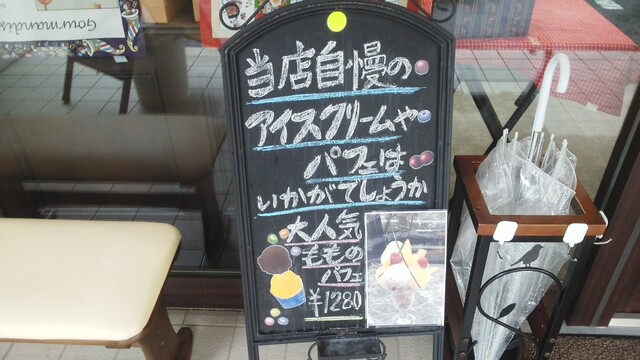 Gourmandis
当店自慢の
アイスクリームや
パフェは
いかがでしょうか
大人気
ももの
パフェ
¥1280